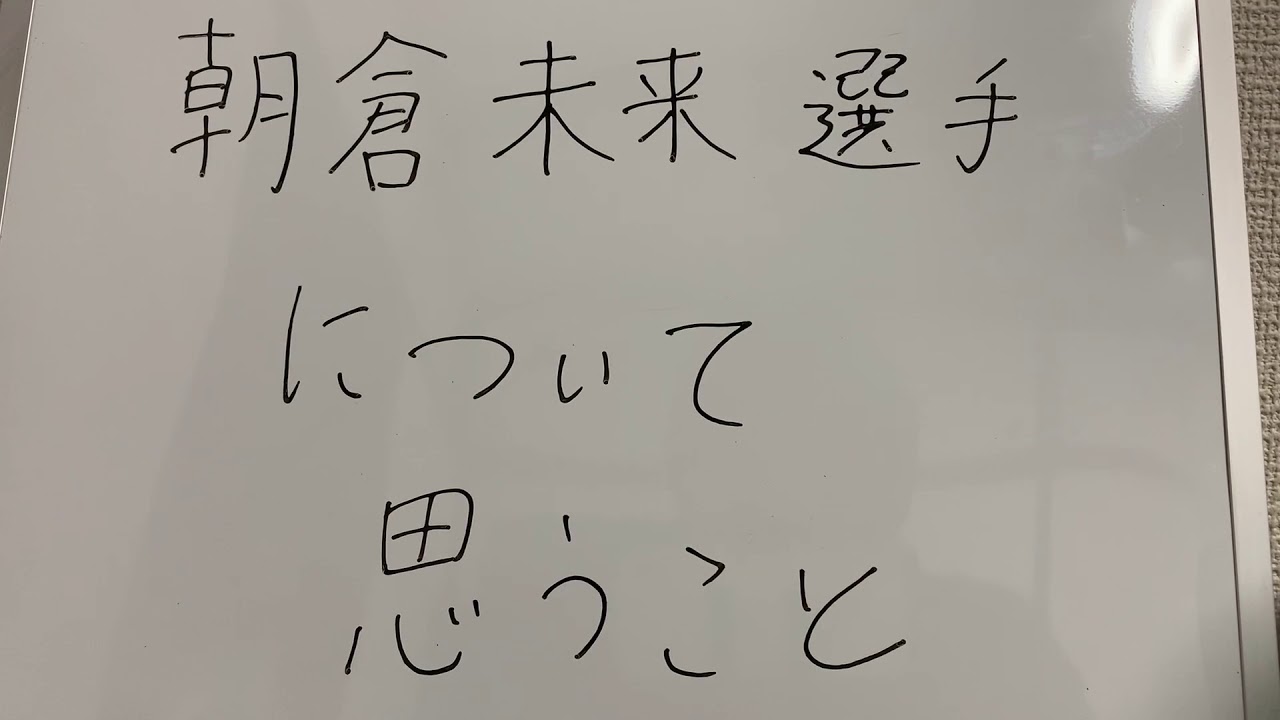 朝倉未来 選手
について
思うこと